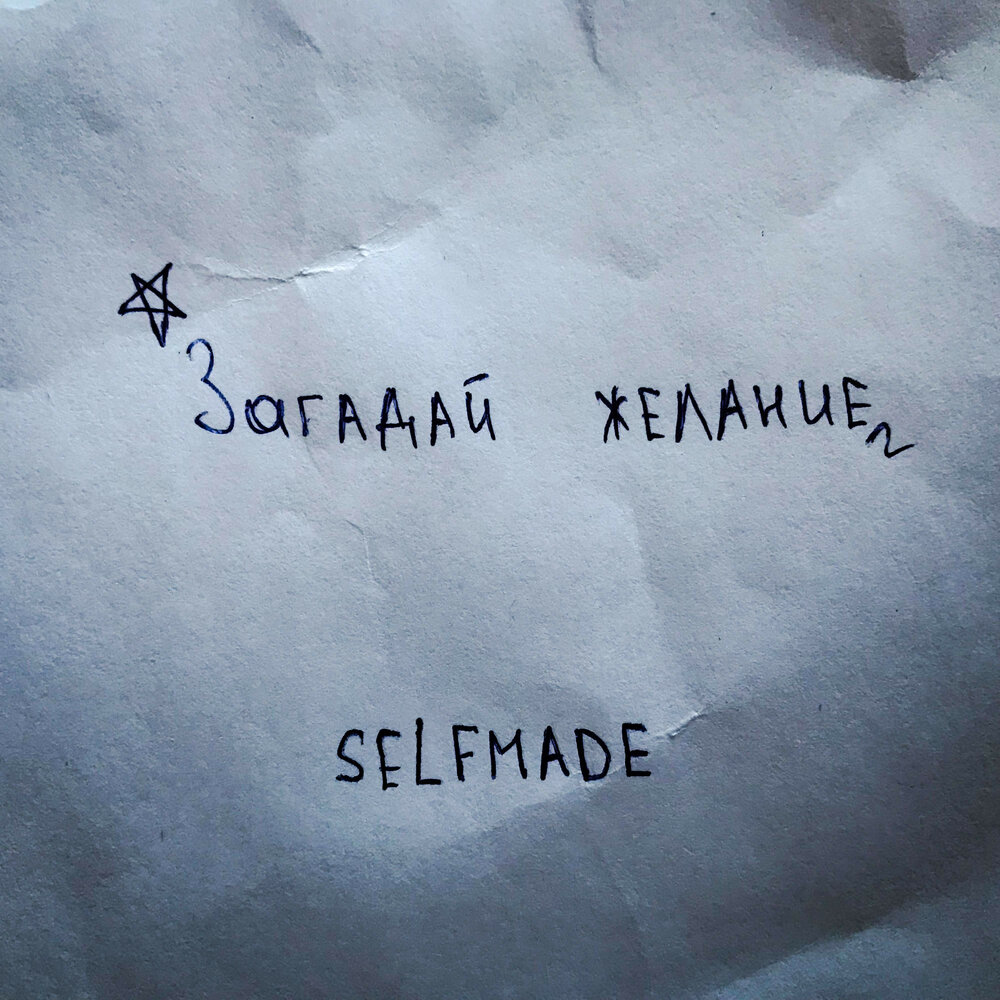 Загадай желание
SELFMADE